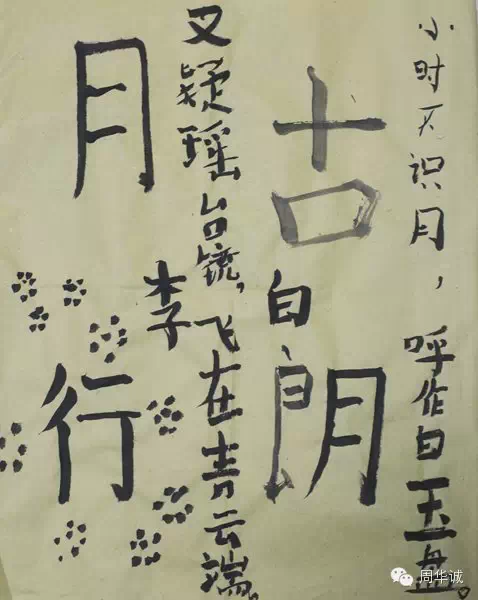 小时不识月，呼作白玉盘。
古朗
月行
李白
又疑瑶台镜，飞在青云端。
周华诚